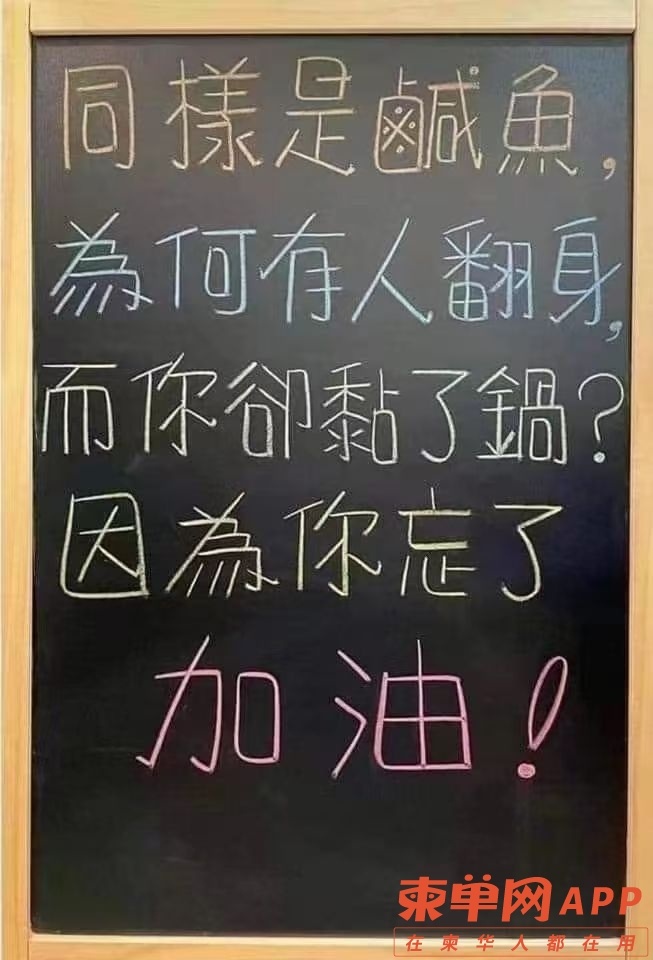 同樣是鹹魚,
為何有人翻身,
而你卻黏了鍋?
因為你忘了
加油!
柬单网APP
在柬华人都在用